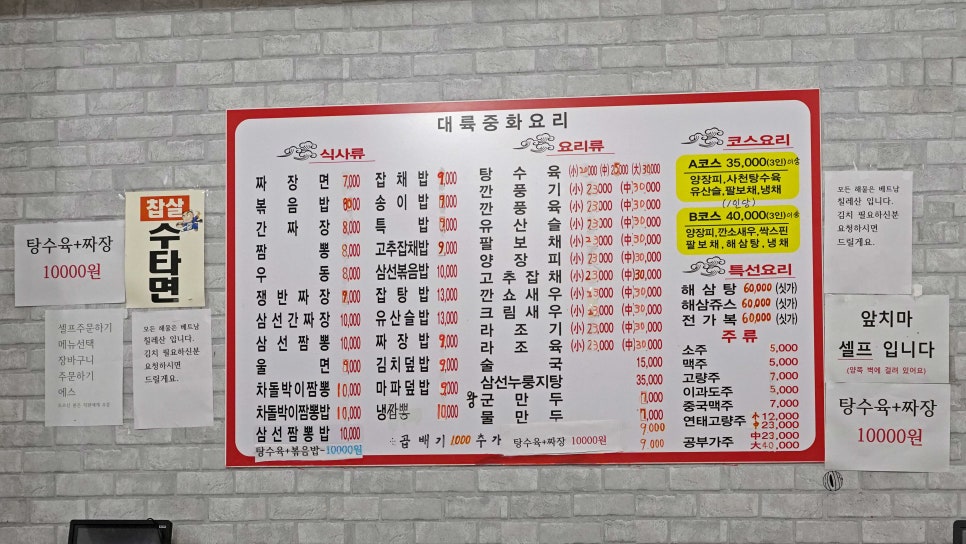 대륙중화요리
식사류
짜장면 7,000
볶음밥
간짜장
짬뽕 8,000
우동 8,000
쟁반짜장
삼선간짜장 10,000
삼선짬뽕 10,000
울면
차돌박이짬뽕 10,000
차돌박이짬뽕밥 10,000
삼선짬뽕밥 10,000
탕수육+볶음밥-10000원
잡채밥 9,000
송이밥
특밥
고추잡채밥 9,000
삼선볶음밥 10,000
잡탕밥 13,000
유산슬밥 13,000
짜장밥 9,000
김치덮밥 9,000
마파덮밥 9,000
냉짬뽕 10,000
※곱빼기 1000 추가
탕수육+짜장 10000원
요리류
탕수육 (小) (中) (大)30,000
깐풍기 (小)23,000 (中)30,000
깐풍육 (小)23,000 (中)30,000
유산슬 (小)23,000 (中)30,000
팔보채 (小)23,000 (中)30,000
양장피 (小)23,000 (中)30,000
고추잡채 (小)23,000 (中)30,000
깐쇼새우 (小)23,000 (中)30,000
크림새우 (小)23,000 (中)30,000
라조기 (小)23,000 (中)30,000
라조육 (小)23,000 (中)30,000
술국 15,000
삼선누룽지탕 35,000
왕군만두
물만두
9,000
9,000
코스요리
A코스 35,000(3인)이상
양장피,사천탕수육
유산슬,팔보채,냉채
(1인당)
B코스 40,000(3인)이상
양장피,깐소새우,싹스핀
팔보채,해삼탕,냉채
특선요리
해삼탕 60,000 (싯가)
해삼쥬스 60,000 (싯가)
전가복 60,000 (싯가)
주류
소주 5,000
맥주 5,000
고량주 7,000
이과도주 5,000
중국맥주 7,000
연태고량주 小12,000
中23,000
공부가주 中23,000
大40,000
탕수육+짜장
10000원
찹쌀
수타면
셀프주문하기
메뉴선택
장바구니
주문하기
예스
모든 해물은 베트남
칠레산 입니다.
김치 필요하신분
요청하시면
드릴게요.
모든 해물은 베트남
칠레산 입니다.
김치 필요하신분
요청하시면
드릴게요.
앞치마
셀프 입니다
(양쪽 벽에 걸려 있어요)
탕수육+짜장
10000원